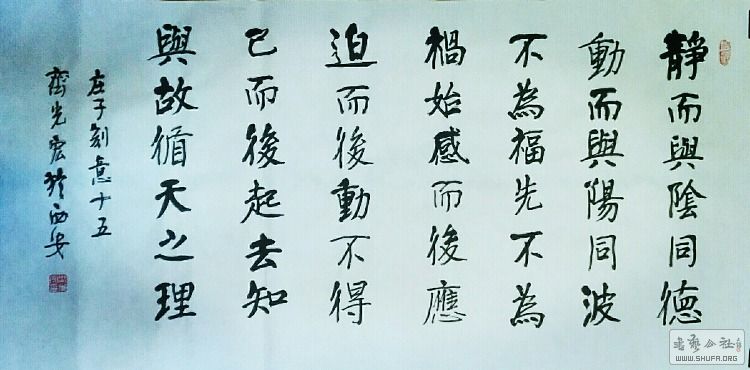 靜而與陰同德
動而與陽同波
不為福先不為
禍始感而後應
迫而後動不得
已而後起去知
與故循天之理
庄子刻意十五
齊光宏於西安
书艺公社
WWW.SHUFA.ORG